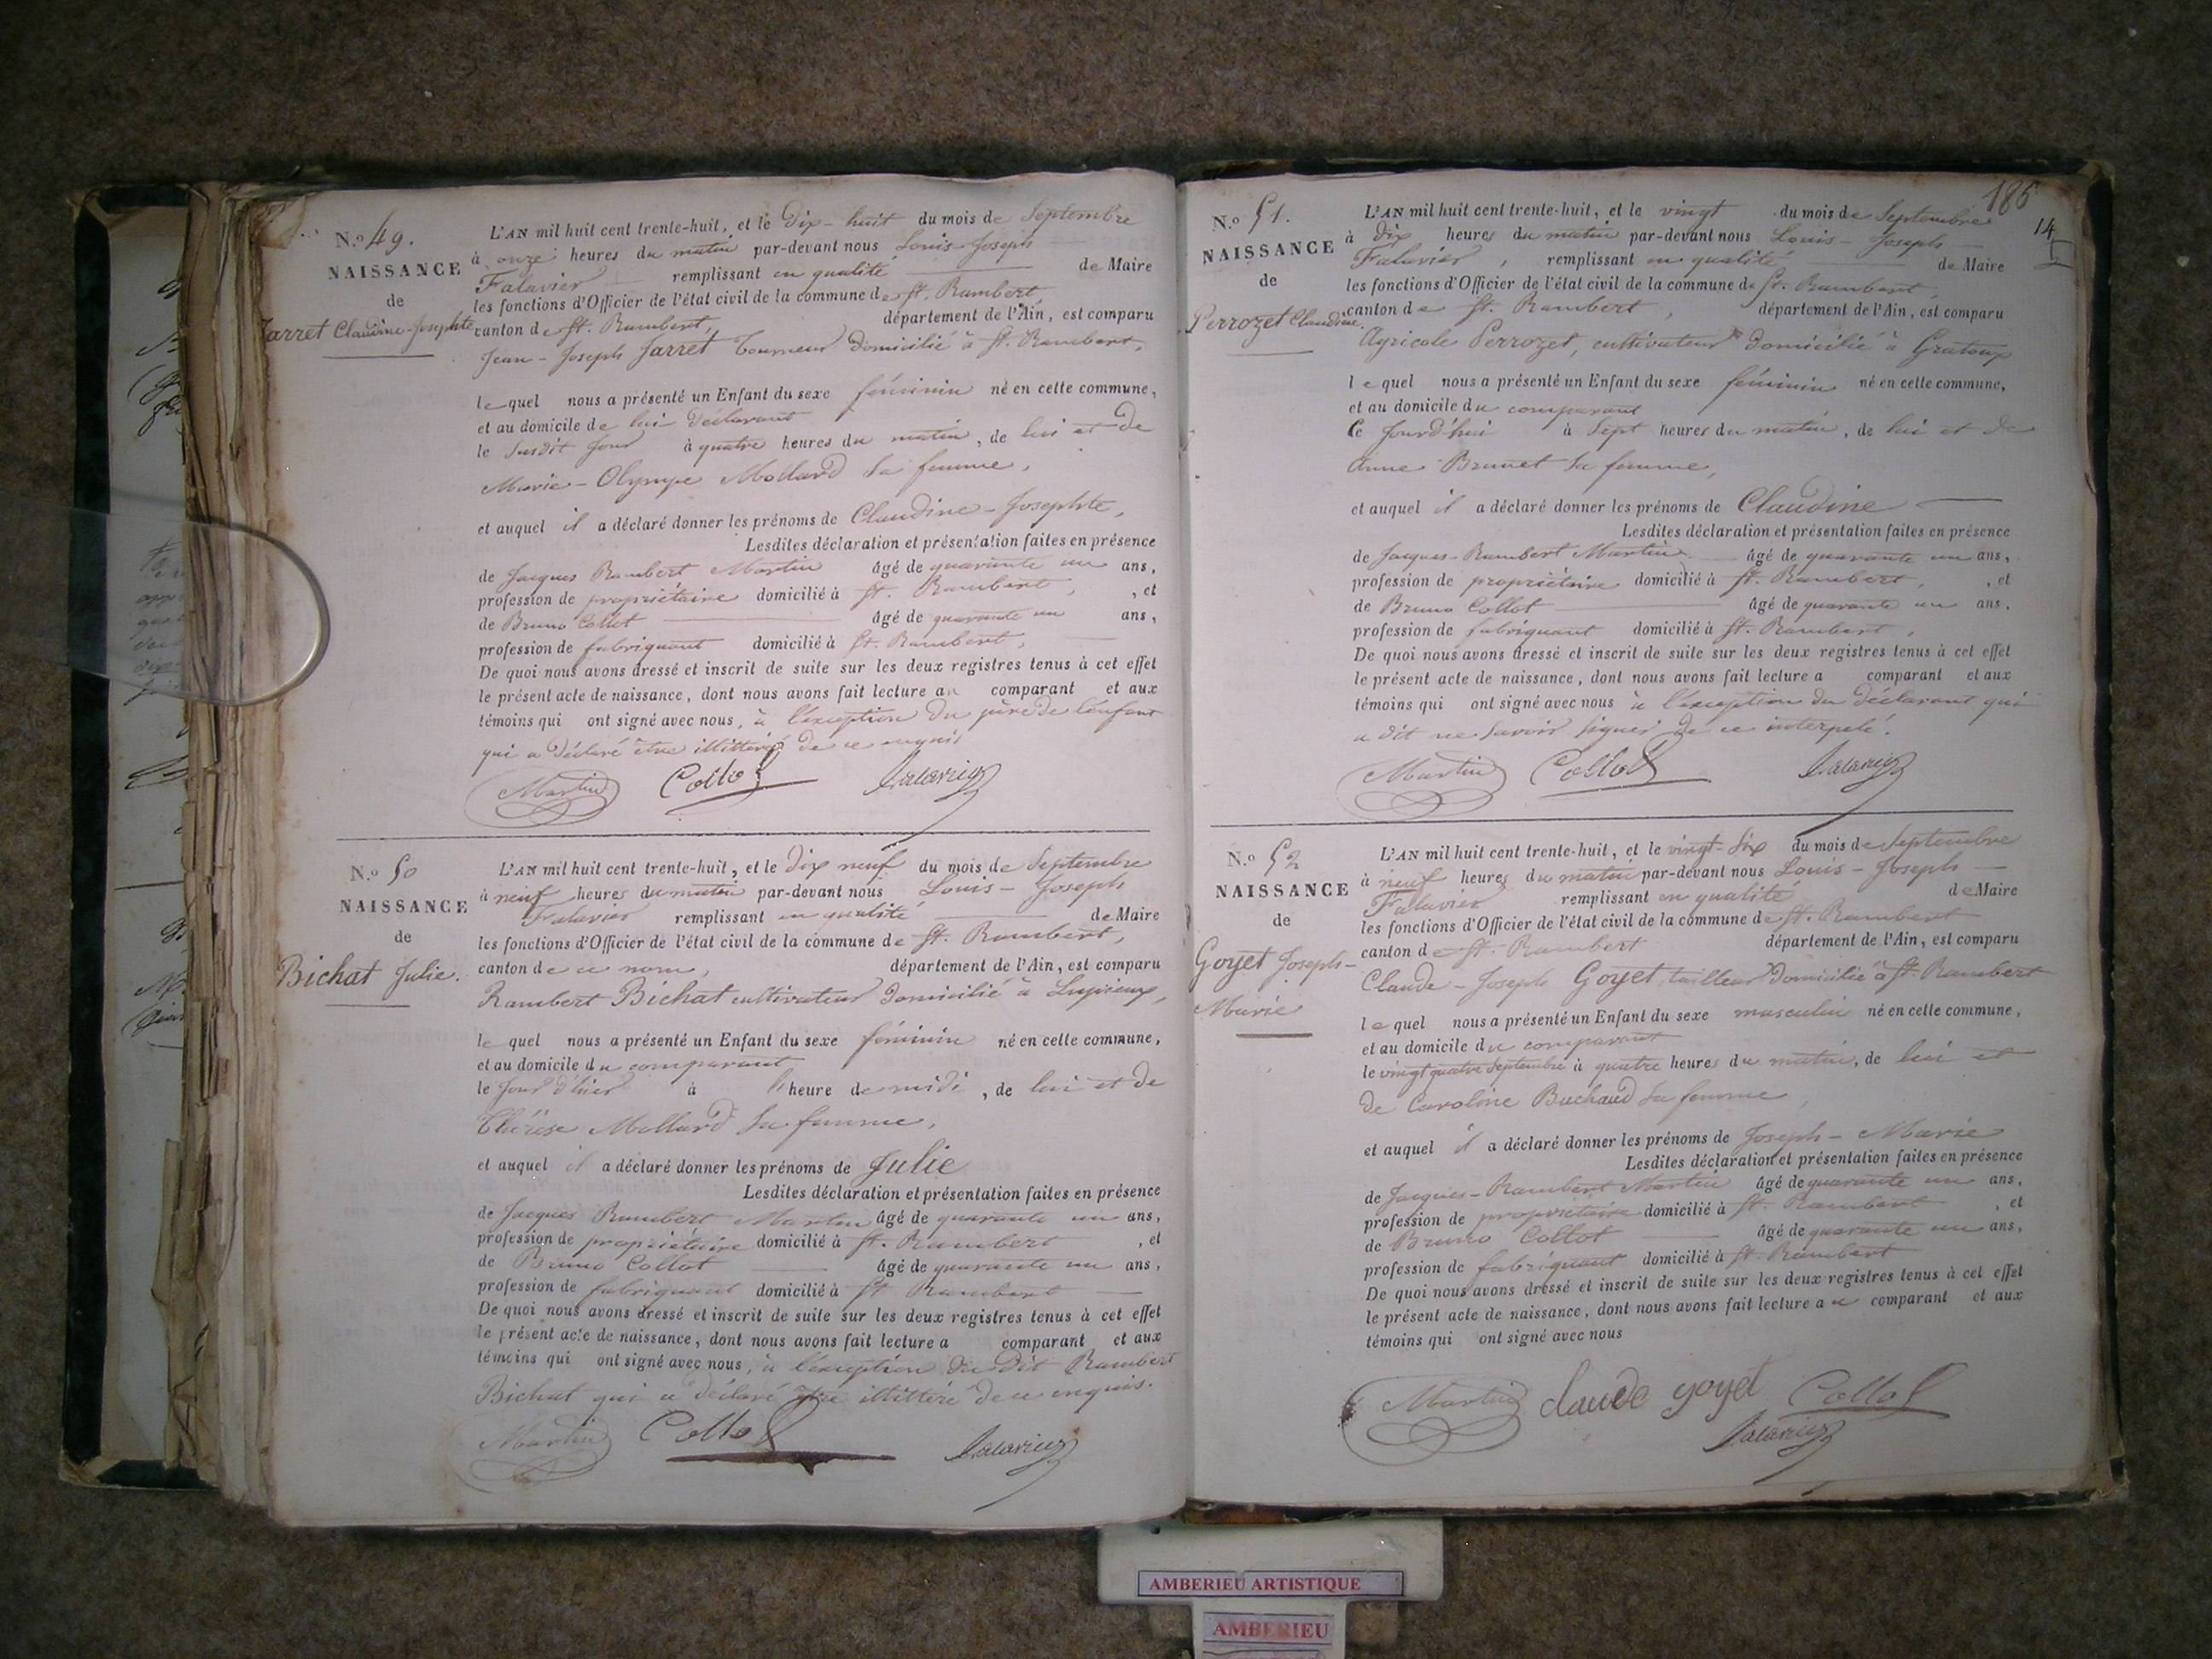 N.o 49.
NAISSANCE
de
Jarret Claudine-Josephte
L'AN mil huit cent trente-huit, et le Dix-huit du mois de Septembre
à onze heures du matin par-devant nous Louis-Joseph
Falavier remplissant en qualité de Maire
les fonctions d'Officier de l'état civil de la commune de St. Rambert,
canton de St. Rambert, département de l'Ain, est comparu
Jean-Joseph Jarret tourneur domicilié à St. Rambert,
lequel nous a présenté un Enfant du sexe féminin né en cette commune,
et au domicile de lui déclarant
le susdit jour à quatre heures du matin, de lui et de
Marie-Olympe Mollard sa femme,
et auquel il a déclaré donner les prénoms de Claudine-Josephte,
Lesdites déclaration et présentation faites en présence
de Jacques Rambert Martin âgé de quarante un ans,
profession de propriétaire domicilié à St. Rambert, , et
de Bruno Collot âgé de quarante un ans,
profession de fabriquant domicilié à St. Rambert,
De quoi nous avons dressé et inscrit de suite sur les deux registres tenus à cet effet
le présent acte de naissance, dont nous avons fait lecture au comparant et aux
témoins qui ont signé avec nous, à l'exception du père de l'enfant
qui a déclaré être illittéré de ce enquis
Martin Collot Falavier
N.o 50
NAISSANCE
de
Bichat Julie.
L'AN mil huit cent trente-huit, et le dix neuf du mois de Septembre
à neuf heures du matin par-devant nous Louis-Joseph
Falavier remplissant en qualité de Maire
les fonctions d'Officier de l'état civil de la commune de St. Rambert,
canton de ce nom, département de l'Ain, est comparu
Rambert Bichat cultivateur domicilié à Lupieux,
lequel nous a présenté un Enfant du sexe féminin né en cette commune,
et au domicile du comparant
le jour d'hier à l'heure de midi, de lui et de
Thérèse Mollard sa femme,
et auquel il a déclaré donner les prénoms de Julie
Lesdites déclaration et présentation faites en présence
de Jacques Rambert Martin âgé de quarante un ans,
profession de propriétaire domicilié à St. Rambert , et
de Bruno Collot âgé de quarante un ans,
profession de fabriquant domicilié à St Rambert
De quoi nous avons dressé et inscrit de suite sur les deux registres tenus à cet effet
le présent acte de naissance, dont nous avons fait lecture a comparant et aux
témoins qui ont signé avec nous, à l'exception du dit Rambert
Bichat qui a déclaré être illittéré de ce enquis.
Martin Collot Falavier
186
14
N.o 51.
NAISSANCE
de
Perrozet Claudine.
L'AN mil huit cent trente-huit, et le vingt du mois de Septembre
à dix heures du matin par-devant nous Louis-Joseph
Falavier, remplissant en qualité de Maire
les fonctions d'Officier de l'état civil de la commune de St. Rambert,
canton de St. Rambert, département de l'Ain, est comparu
Agricole Perrozet, cultivateur domicilié à Gratoux
lequel nous a présenté un Enfant du sexe féminin né en cette commune,
et au domicile du comparant
Ce jourd'hui à sept heures du matin, de lui et de
Anne Brunet sa femme,
et auquel il a déclaré donner les prénoms de Claudine
Lesdites déclaration et présentation faites en présence
de Jacques-Rambert Martin âgé de quarante un ans,
profession de propriétaire domicilié à St. Rambert, , et
de Bruno Collot âgé de quarante un ans.
profession de fabriquant domicilié à St. Rambert,
De quoi nous avons dressé et inscrit de suite sur les deux registres tenus à cet effet
le présent acte de naissance, dont nous avons fait lecture a comparant et aux
témoins qui ont signé avec nous à l'exception du déclarant qui
a dit ne savoir signer de ce interpelé.
Martin Collot Falavier
N.o 52
NAISSANCE
de
Goyet Joseph-
Marie
L'AN mil huit cent trente-huit, et le vingt-six du mois de Septembre
à neuf heures du matin par-devant nous Louis-Joseph
Falavier remplissant en qualité de Maire
les fonctions d'Officier de l'état civil de la commune de St. Rambert
canton de St. Rambert département de l'Ain, est comparu
Claude-Joseph Goyet, tailleur domicilié à St. Rambert
lequel nous a présenté un Enfant du sexe masculin né en cette commune,
et au domicile du comparant
le vingt quatre Septembre à quatre heures du matin, de lui et
de Caroline Buchaud sa femme,
et auquel il a déclaré donner les prénoms de Joseph-Marie
Lesdites déclaration et présentation faites en présence
de Jacques-Rambert Martin âgé de quarante un ans,
profession de propriétaire domicilié à St. Rambert , et
de Bruno Collot âgé de quarante un ans,
profession de fabriquant domicilié à St. Rambert
De quoi nous avons dressé et inscrit de suite sur les deux registres tenus à cet effet
le présent acte de naissance, dont nous avons fait lecture au comparant et aux
témoins qui ont signé avec nous
Martin claude goyet Collot
Falavier
AMBERIEU ARTISTIQUE
AMBERIEU